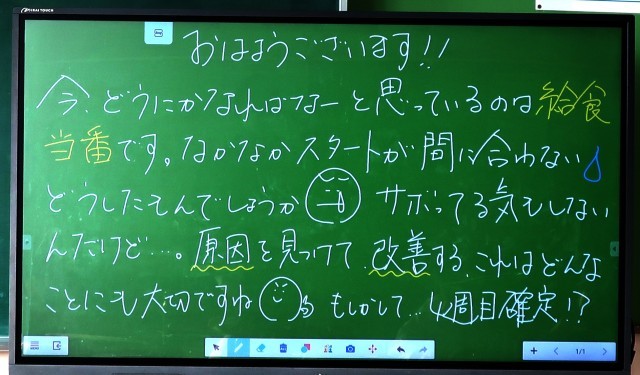 おはようございます!!
今、どうにかなればなーと思っているのは給食
当番です。なかなかスタートが間に合わない
どうしたもんでしょうか サボってる気もしない
んだけど…。原因を見つけて、改善する。これはどんな
ことにも大切ですね る もしかして…4週目確定!?
1/1